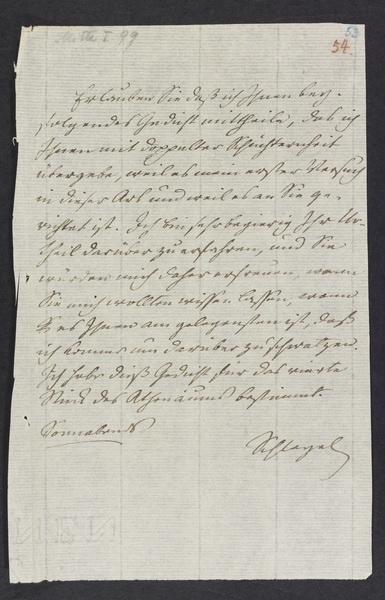 Mitte I. 99
53
54.
Erlauben Sie daß ich Ihnen bey-
folgendes Gedicht mittheile, das ich
Ihnen mit doppelter Schüchternheit
übergebe, weil es mein erster Versuch
in dieser Art und weil es an Sie ge-
richtet ist. Ich bin sehr begierig Ihr Ur-
theil darüber zu erfahren, und Sie
würden mich daher erfreuen, wenn
Sie mich wollten wissen lassen, wann
es Ihnen am gelegensten ist, daß
ich komme um darüber zu schwatzen.
Ich habe dieß Gedicht für das vierte
Stück des Athenäums bestimmt.
Sonnabends
Schlegel